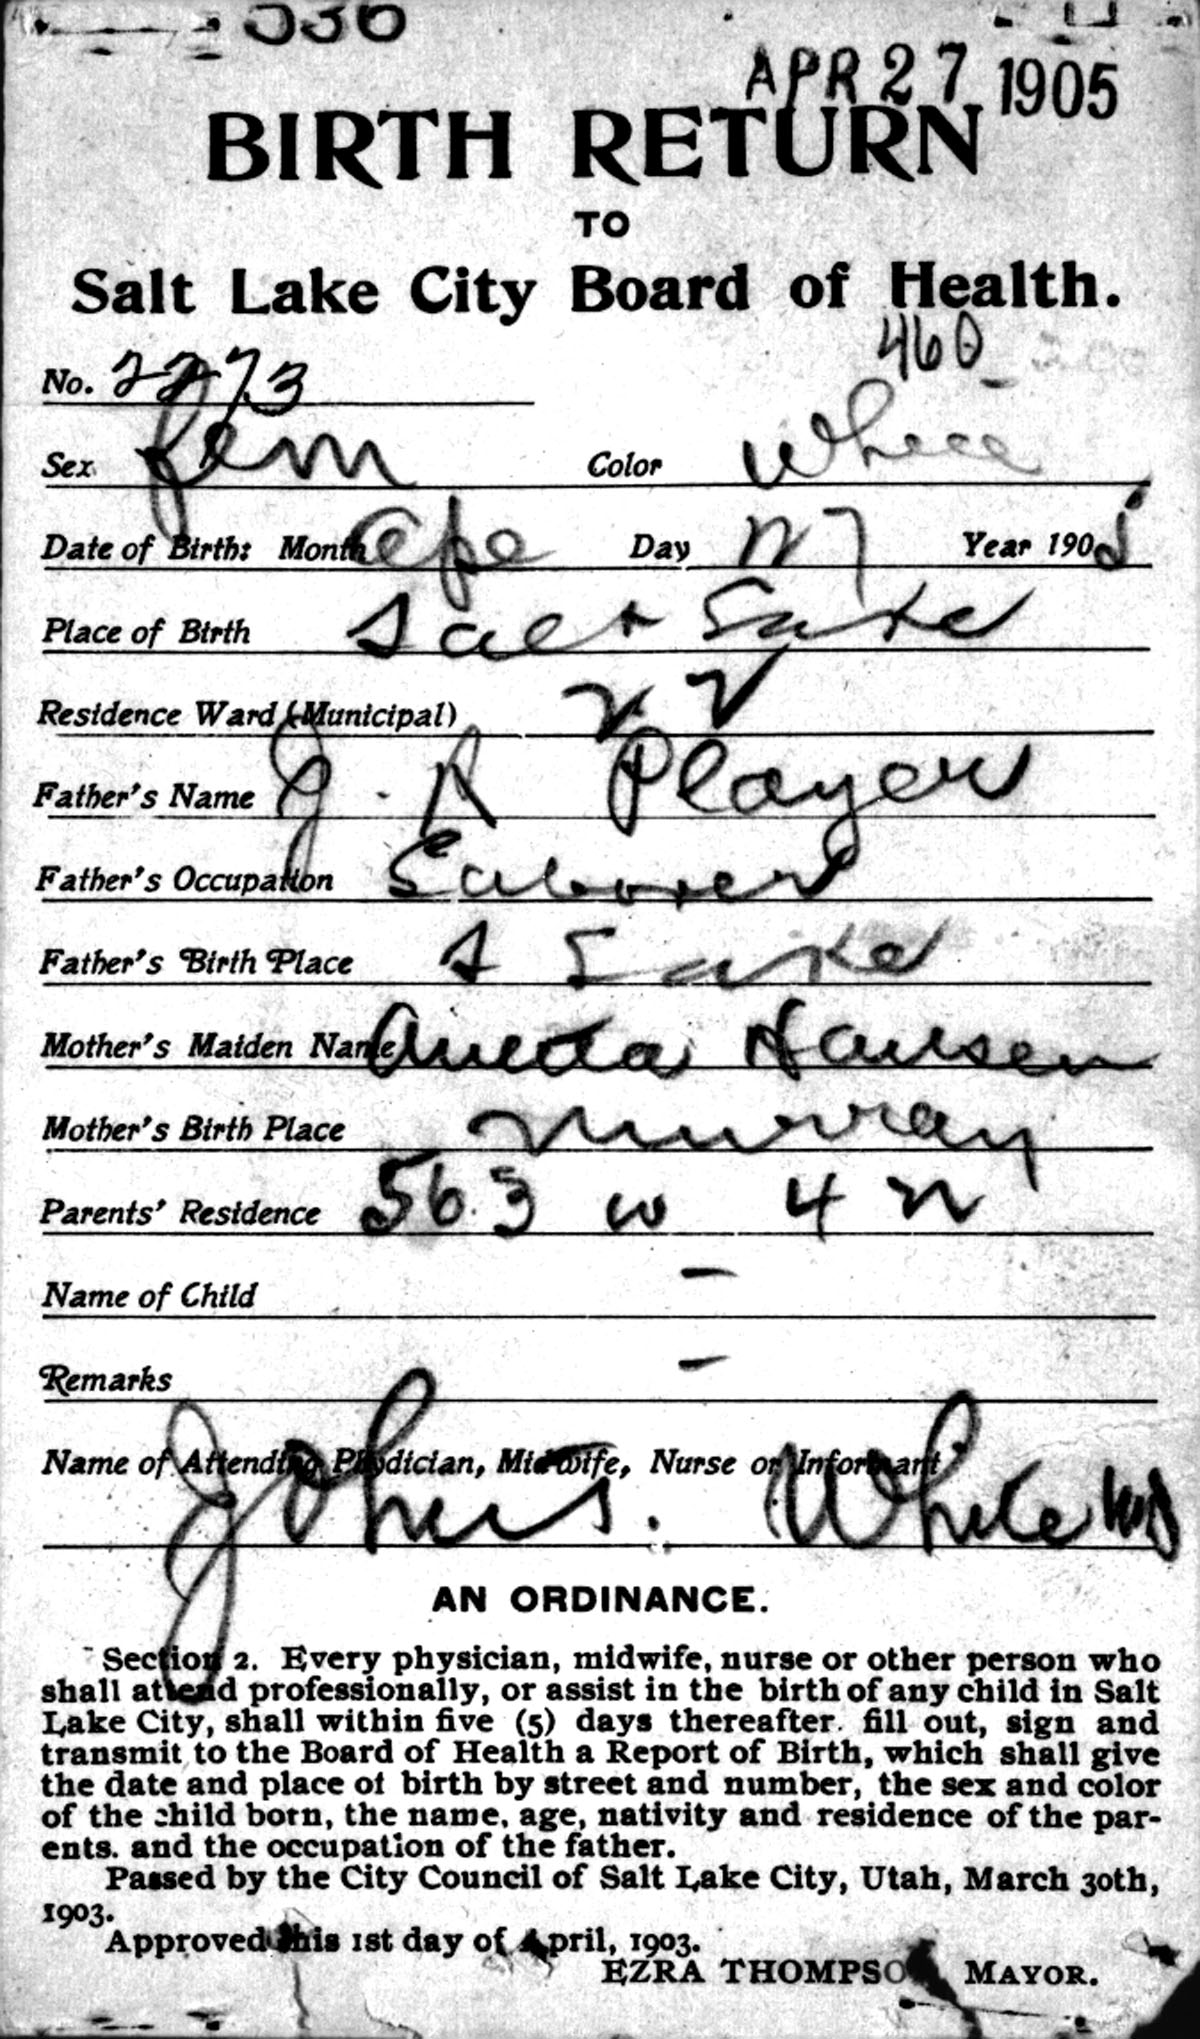 536
APR 27 1905
BIRTH RETURN
TO
Salt Lake City Board of Health.
460
No. 2273
Sex fem Color White
Date of Birth: Month Apr Day 27 Year 1905
Place of Birth Salt Lake
Residence Ward (Municipal)
Father's Name J. A Player
Father's Occupation Laborer
Father's Birth Place S Lake
Mother's Maiden Name Hansen
Mother's Birth Place Murray
Parents' Residence 563 w 4 n
Name of Child –
Remarks –
Name of Attending Physician, Midwife, Nurse or Informant
John S. White MD
AN ORDINANCE.
Section 2. Every physician, midwife, nurse or other person who
shall attend professionally, or assist in the birth of any child in Salt
Lake City, shall within five (5) days thereafter fill out, sign and
transmit to the Board of Health a Report of Birth, which shall give
the date and place of birth by street and number, the sex and color
of the child born, the name, age, nativity and residence of the par-
ents. and the occupation of the father.
Passed by the City Council of Salt Lake City, Utah, March 30th,
1903.
Approved this 1st day of April, 1903.
EZRA THOMPSON MAYOR.